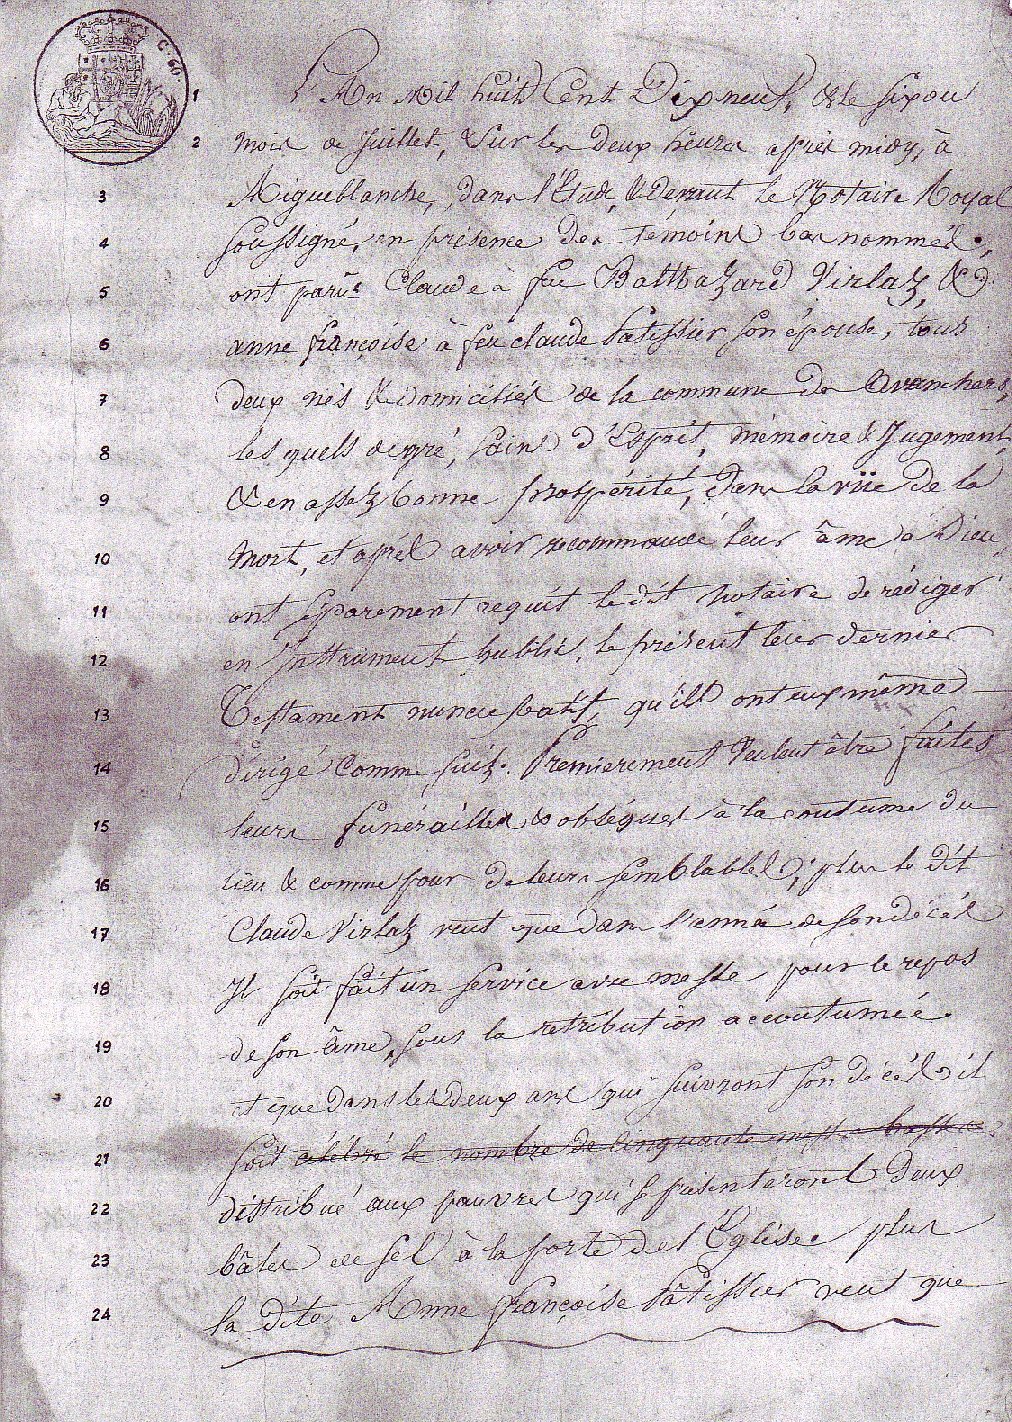 C. 60.
1 L'An Mil huit Cent Dixneuf, & le six du
2 mois de Juillet, Sur les deux heures après midy, à
3 Aigueblanche, dans l'Etude, & devant le Notaire Royal
4 Soussigné, en présence des témoins bas nommés,
5 ont paru Claude à feu Balthazard Virlaz, &
6 anne françoise à feu claude Patissier son épouse, tous
7 deux nés & domiciliés de la commune de
8 lesquels de gré, sains d'Esprit, mémoire & Jugement,
9 & en assez bonne prospérité, dans la vüe de la
10 Mort, et après avoir recommandé leur âme à Dieu,
11 ont séparement requit le dit Notaire de rédiger
12 en Instrument public, le présent leur dernier
13 Testament nuncupatif, qu'ils ont eux même
14 dirigé Comme suit. Premierement Veulent être faites
15 leurs funérailles & obséques à la coutume du
16 lieu & comme pour de leurs semblables; plus le dit
17 Claude Virlaz veut que dans l'année de son décés
18 Il soit fait un service avec messe pour le repos
19 de son âme, sous la retribution accoutumée.
20 et que dans les deux ans qui suivront son décés il
21 soit célébré le nombre de cinquante messe basse
22 distribué aux pauvres qui se présenteront deux
23 bâles de sel à la porte de l'Église plus
24 la dite Anne françoise Pâtissier veut que